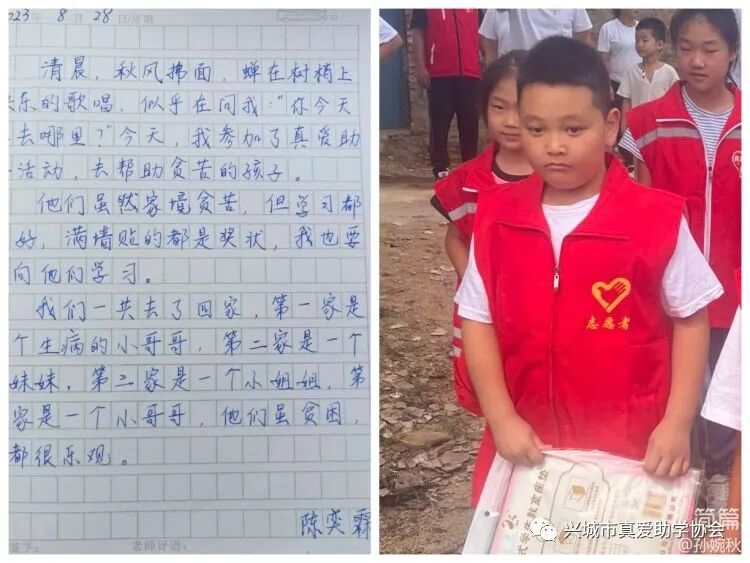 023年 8月 28日/星期
清晨，秋风拂面，蝉在树梢上
乐的歌唱，似乎在问我："你今天
去哪里？"今天，我参加了真爱助
活动，去帮助贫苦的孩子。
他们虽然家境贫苦，但学习都
好，满墙贴的都是奖状，我也要
向他们学习。
我们一共去了四家，第一家是
个生病的小哥哥，第二家是一个
妹妹，第二家是一个小姐姐，第
家是一个小哥哥，他们虽贫困，
都很乐观。
陈奕霖
签字：
老师评语：
志愿者
式学生教室座垫
简篇
兴城市真爱助学协会
@孙婉秋